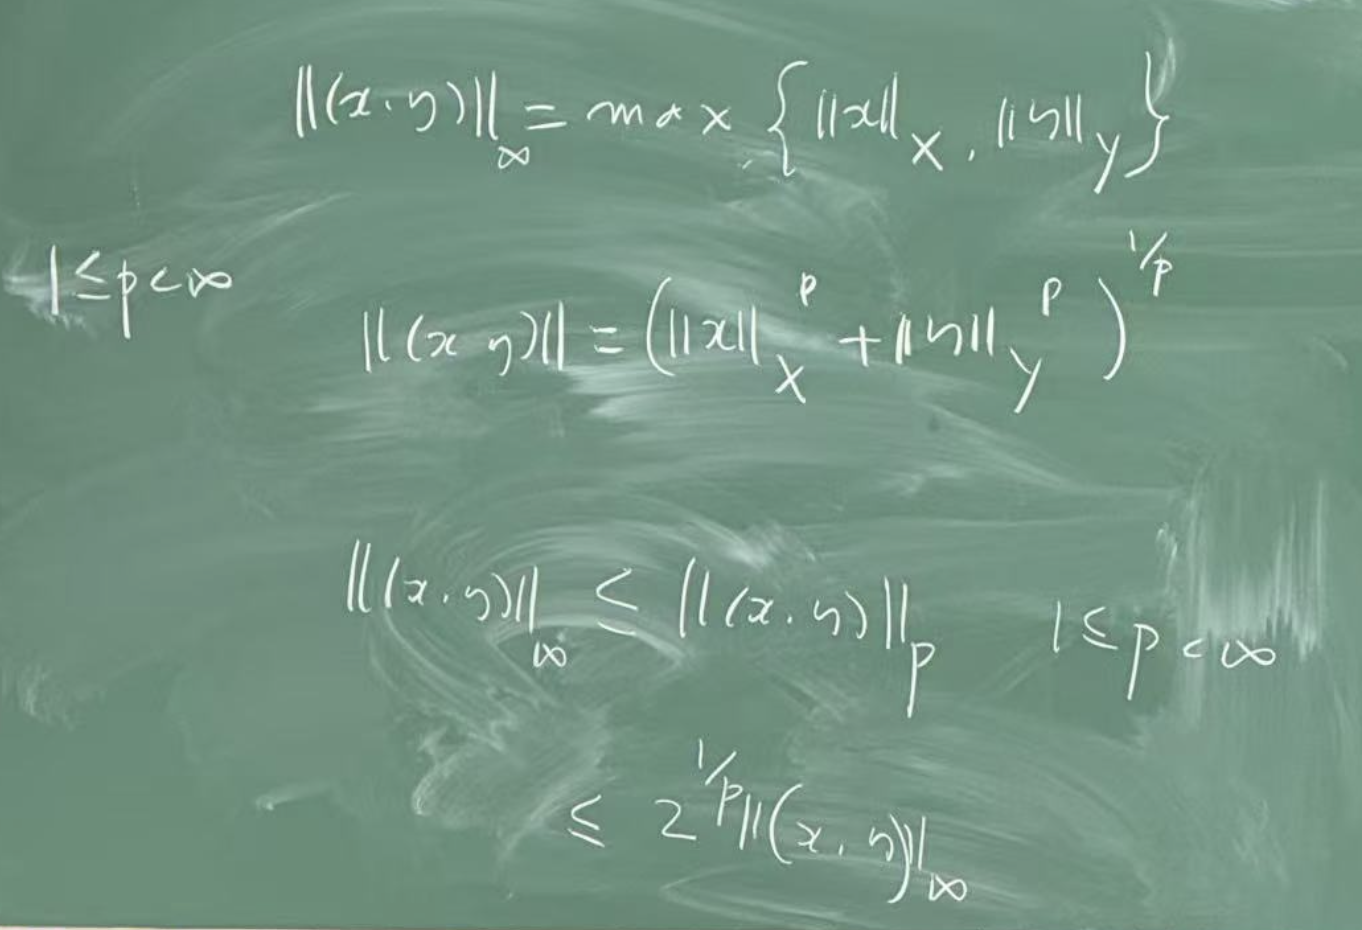 ‖(x, y)‖_∞ = max {‖x‖_X, ‖y‖_Y}
1 ≤ p < ∞
‖(x y)‖ = (‖x‖_X^p + ‖y‖_Y^p)^{1/p}
‖(x, y)‖_∞ ≤ ‖(x, y)‖_p 1 ≤ p < ∞
≤ 2^{1/p} ‖(x, y)‖_∞